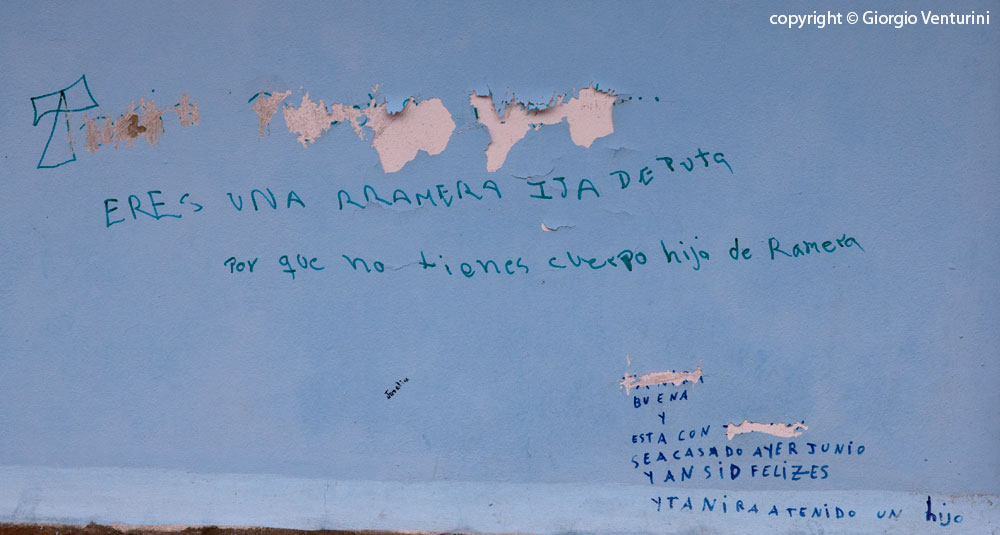 copyright © Giorgio Venturini
ERES UNA RRAMERA IJA DE PUTA
Por que no tienes cuerpo hijo de Ramera
BUENA
Y
ESTA CON
SEACASADO AYER JUNIO
Y ANSID FELIZES
YTANIRA ATENIDO UN hijo